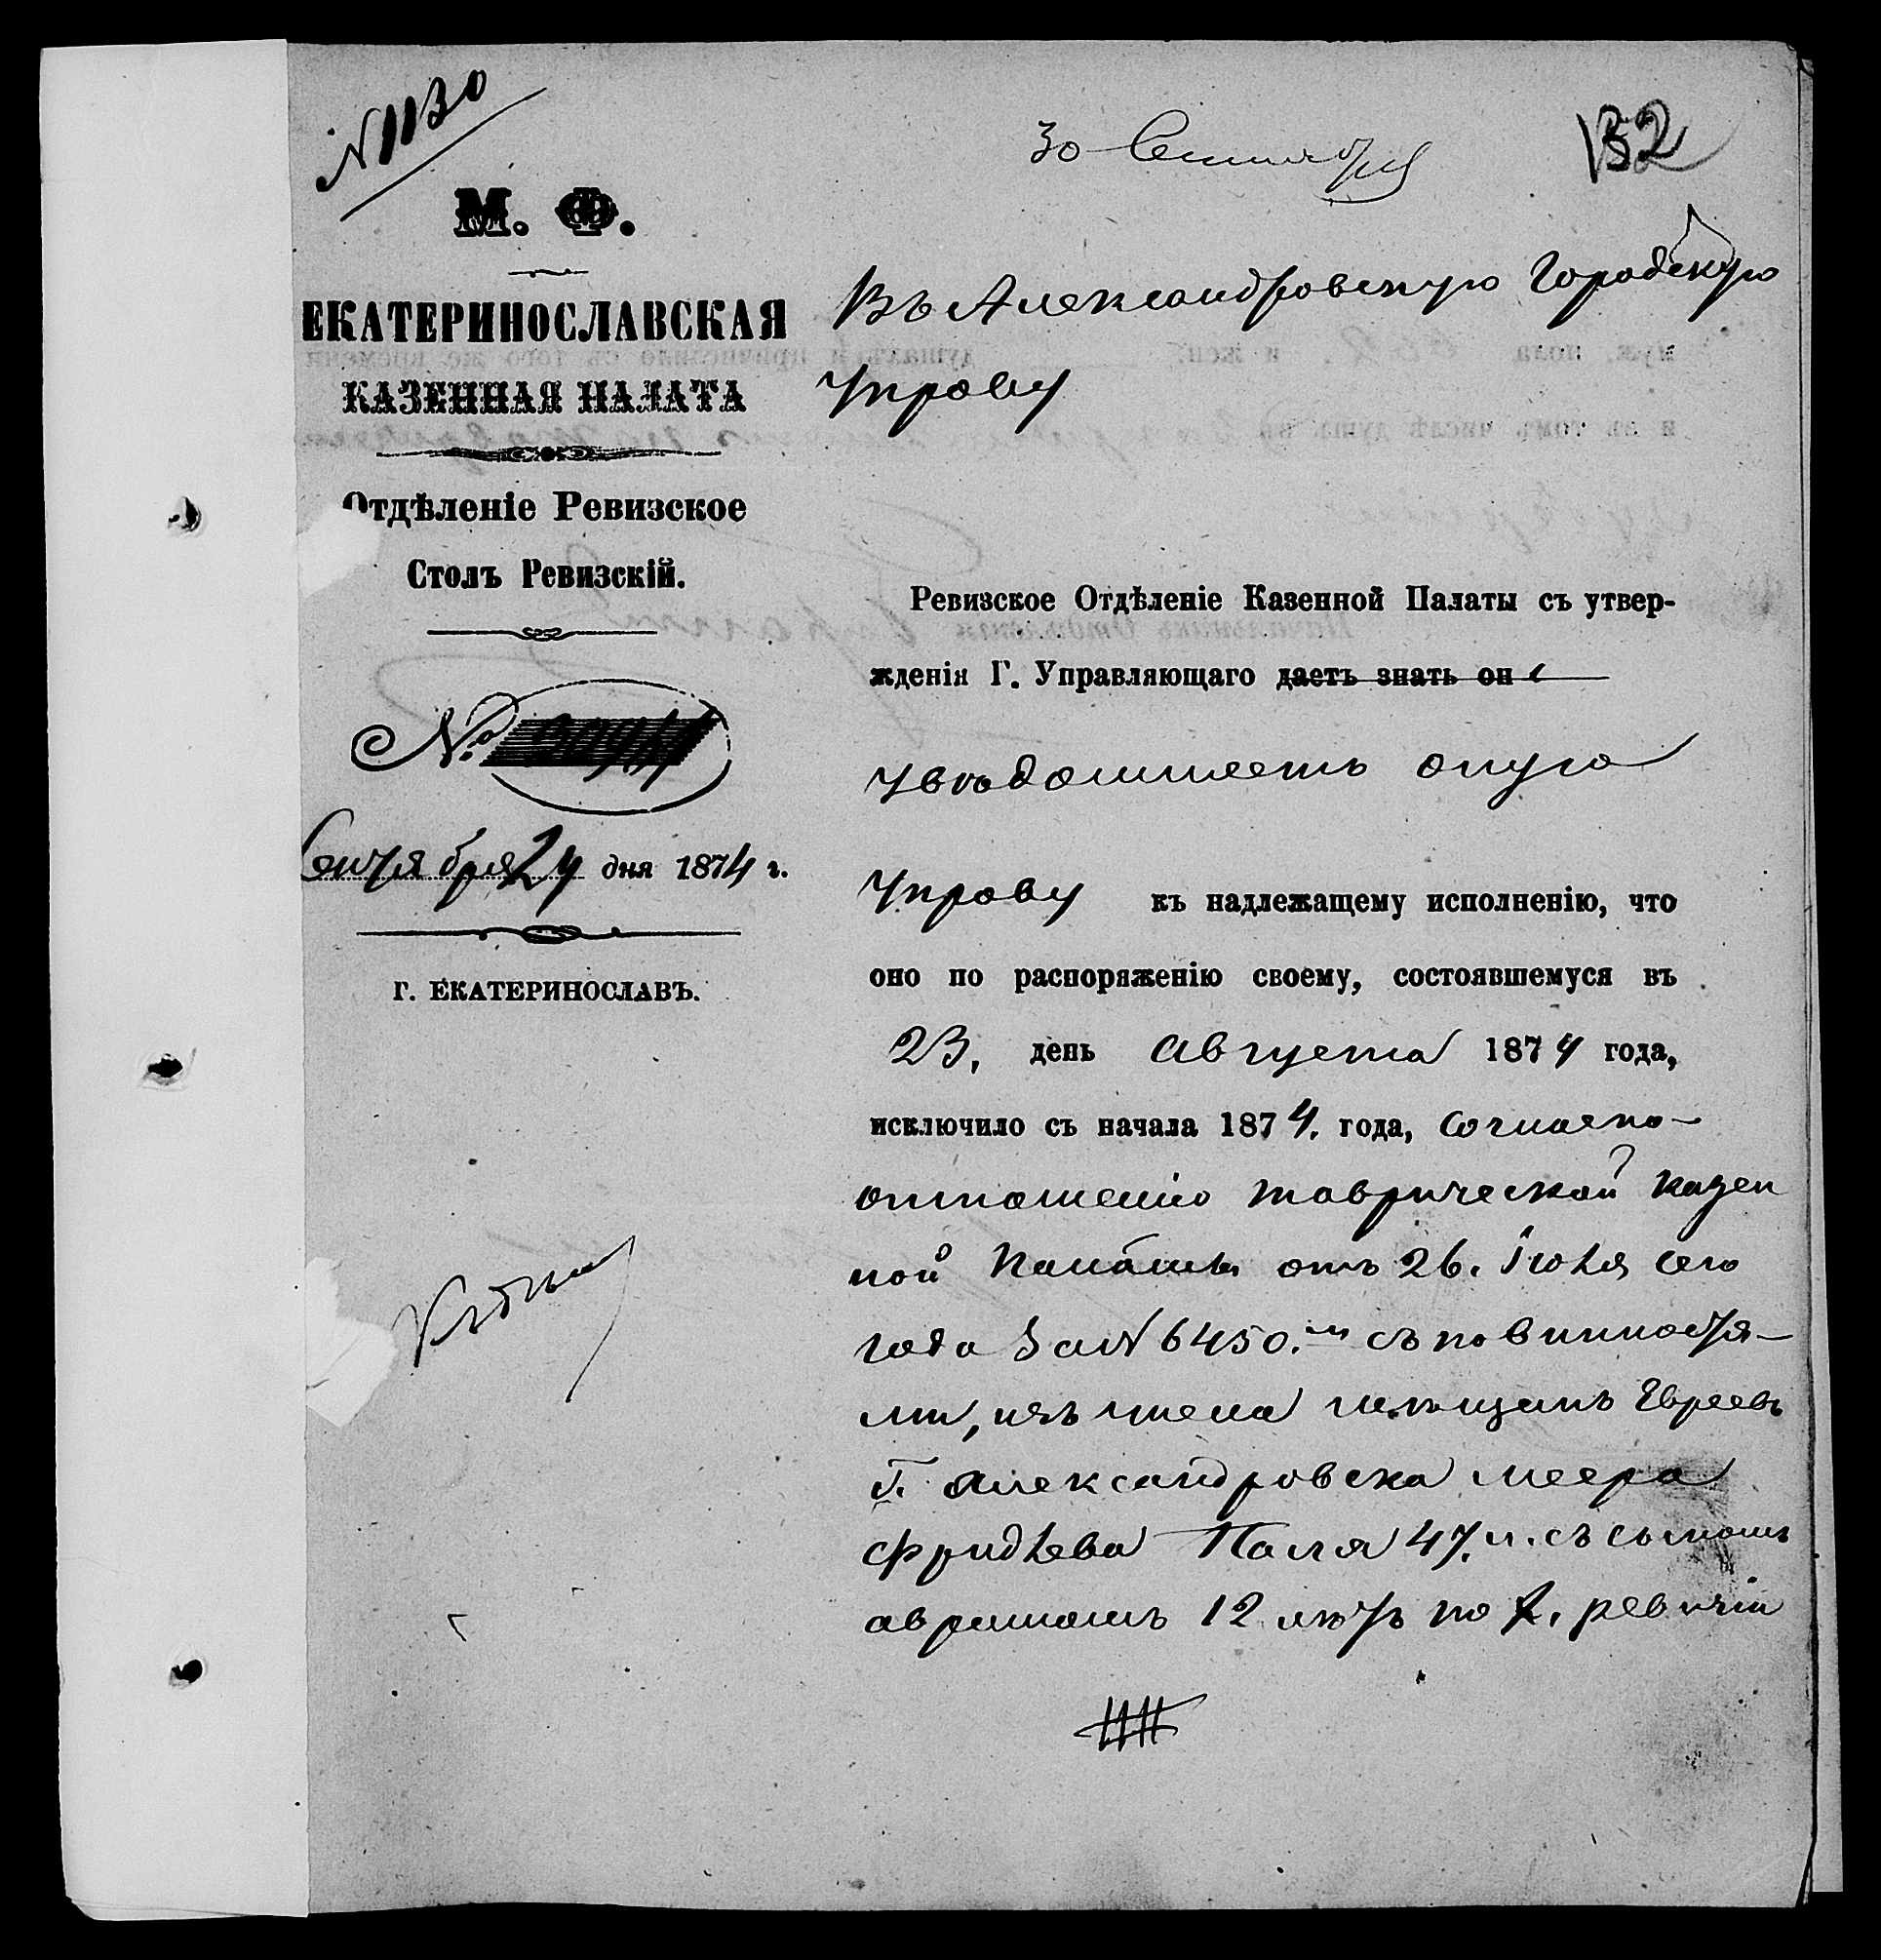 N 1130
30 Сентября
132
М. Ф.
ЕКАТЕРИНОСЛАВСКАЯ
КАЗЕННАЯ ПАЛАТА
Отдѣленіе Ревизское
Столъ Ревизскій.
№
Сентября 24 дня 1874 г.
Г. ЕКАТЕРИНОСЛАВЪ.
Въ Александровскую Городскую
Управу
Ревизское Отдѣленіе Казенной Палаты съ утвер-
жденія Г. Управляющаго даетъ знать он
увѣдомляетъ оную
Управу къ надлежащему исполненію, что
оно по распоряженію своему, состоявшемуся въ
23, день Августа 1874 года,
исключило съ начала 1874. года, согласно
отношенію Таврической Казен
ной Палаты отъ 26. Іюля сего
года за N 6450. съ повинностя-
ми, изъ числа мѣщанъ Евреевъ
г. Александровска Меера
Фридлева Паля 47. л. съ сыномъ
Аврамомъ 12 лѣтъ по X. ревизіи